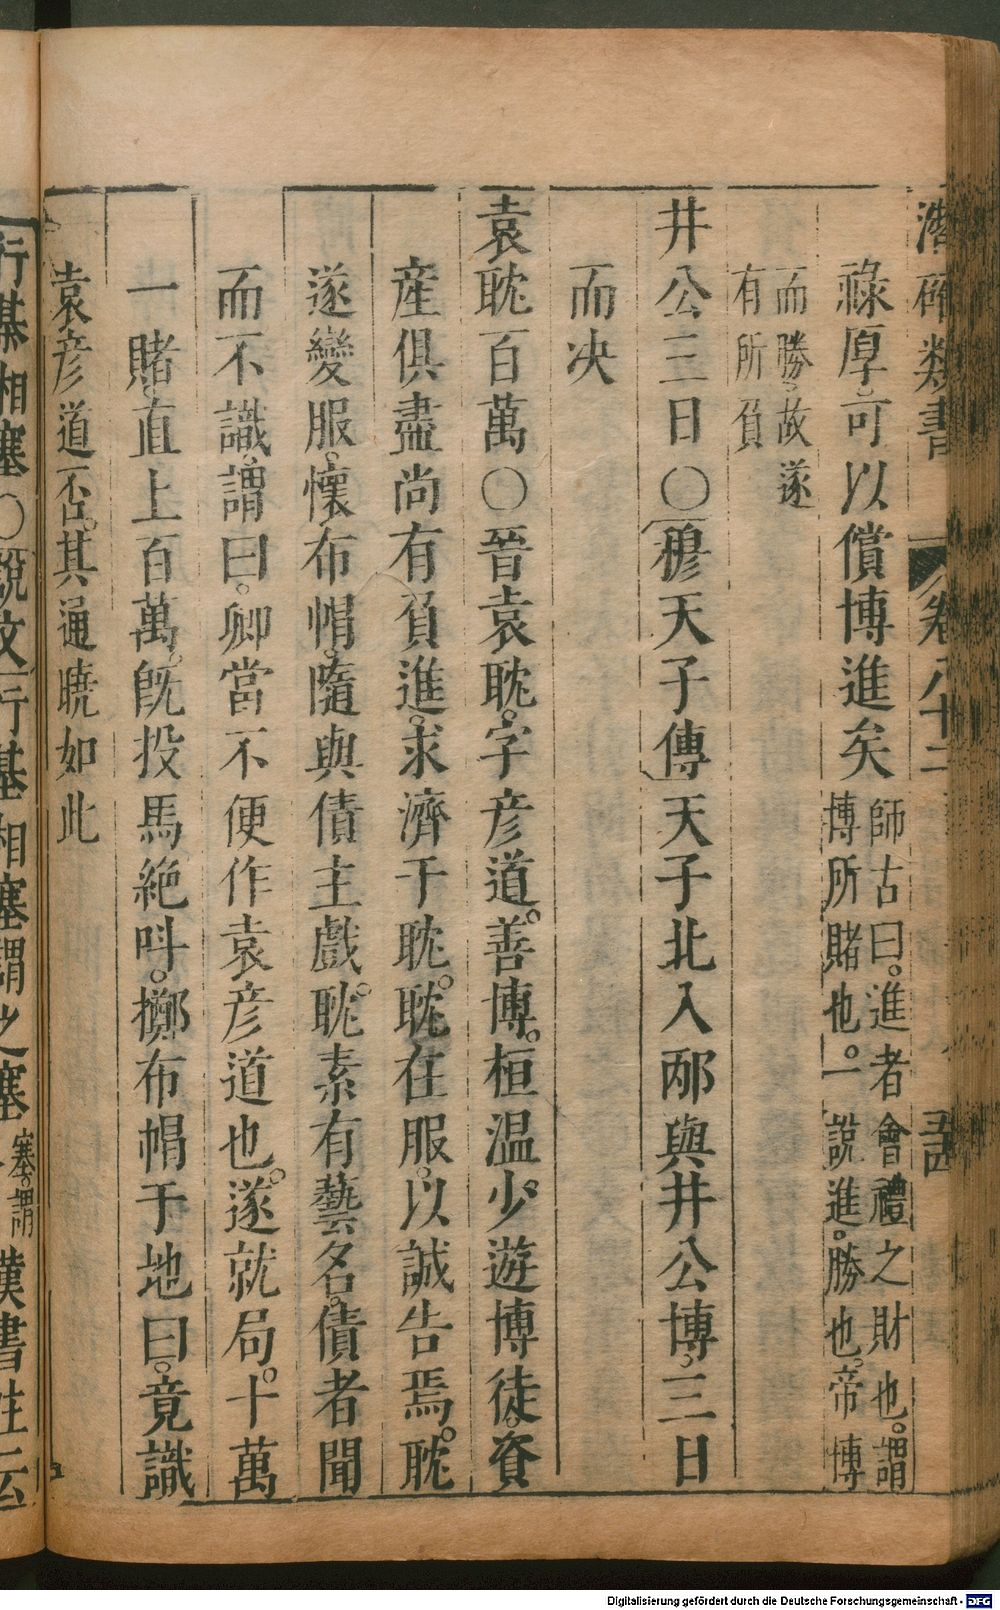 潛確類書 卷八十二 五十四
祿厚可以償博進矣師古曰進者會禮之財也謂
博所賭也一說進勝也帝博
而勝故遂
有所負
井公三日○穆天子傳天子北入邴與井公博三日
而决
袁耽百萬○晉袁耽字彦道善博桓温少遊博徒資
産俱盡尚有負進求濟于耽耽在服以誠告焉耽
遂變服懷布帽隨與債主戲耽素有藝名債者聞
而不識謂曰卿當不便作袁彦道也遂就局十萬
一賭直上百萬既投馬絶呌擲布帽于地曰竟識
袁彦道否其通曉如此
行棊相塞○說文行棊相塞謂之塞塞謂漢書註云
Digitalisierung gefördert durch die Deutsche Forschungsgemeinschaft - DFG